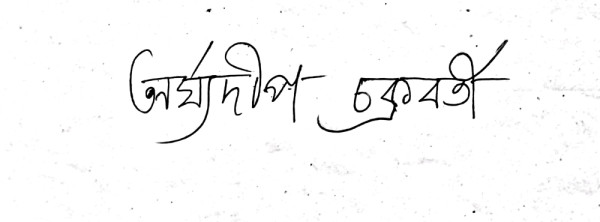 অর্ঘ্যদীপ চক্রবর্তী